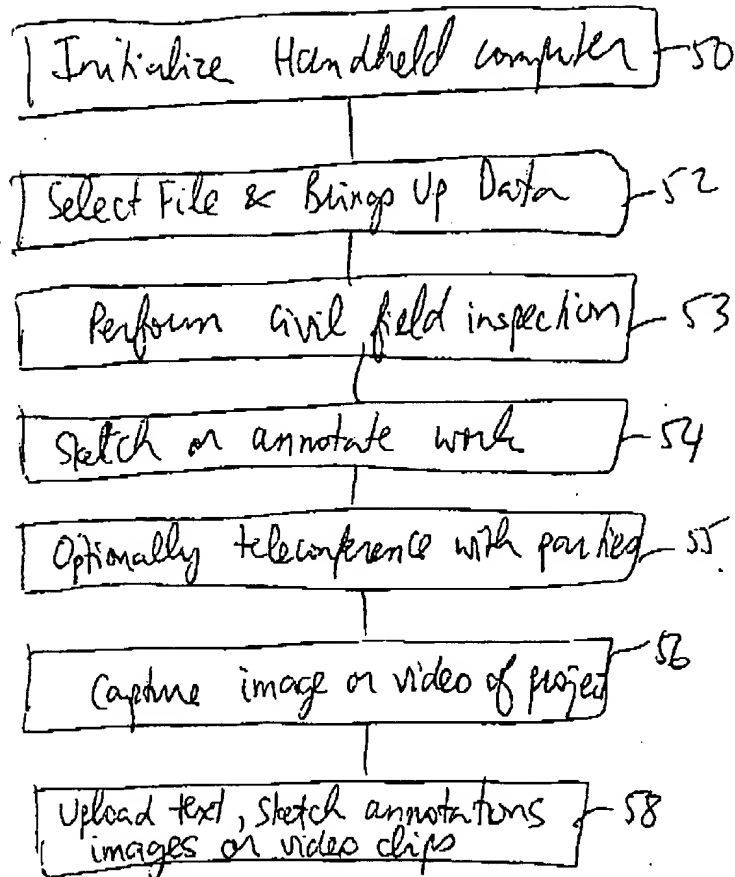 Initialize Handheld computer 50
Select File & Brings Up Data 52
Perform civil field inspection 53
Sketch or annotate work 54
Optionally teleconference with parties 55
Capture image or video of project 56
Upload text, sketch annotations 58
images or video clips